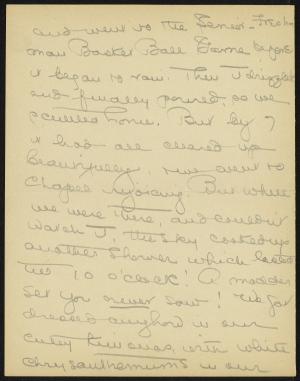 and went to the Senior - Freshman
man Basket Ball Game before
it began to rain. Then it drizzled
and finally poured, so we
paddled home. But by 7
it had all cleared up
beautifully, & we went to
Chapel rejoicing. But while
we were there, and couldn't
watch it, the sky cooked up
another shower which lasted
till 10 o'clock! A madder
set you never saw! We got
dressed anyhow in our
cutey kimonas, with white
chrysanthemums in our